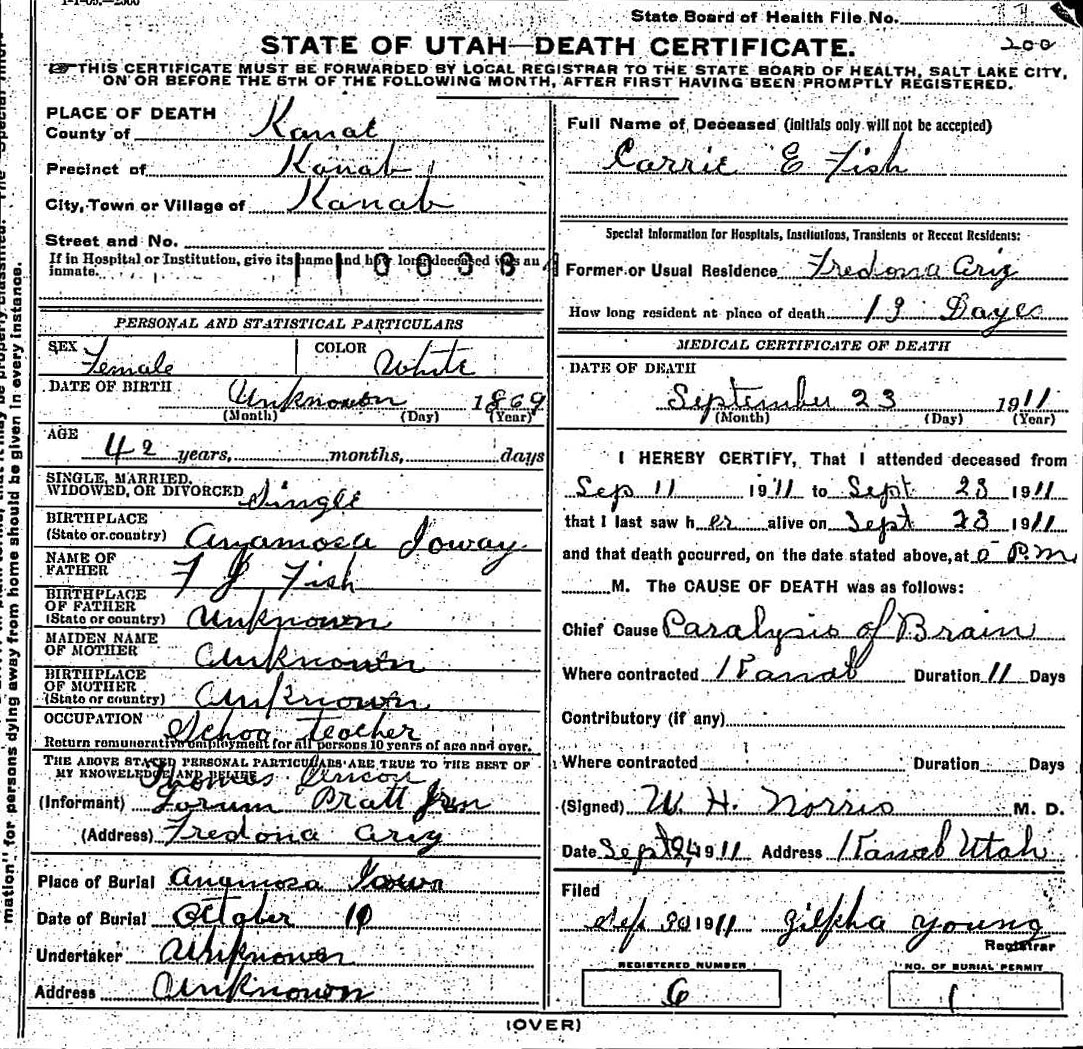 State Board of Health File No.
200
STATE OF UTAH—DEATH CERTIFICATE.
THIS CERTIFICATE MUST BE FORWARDED BY LOCAL REGISTRAR TO THE STATE BOARD OF HEALTH, SALT LAKE CITY,
ON OR BEFORE THE 5TH OF THE FOLLOWING MONTH, AFTER FIRST HAVING BEEN PROMPTLY REGISTERED.
PLACE OF DEATH
County of Kanab
Precinct of Kanab
City, Town or Village of Kanab
Street and No.
If in Hospital or Institution, give its name and how long deceased was an
inmate.
PERSONAL AND STATISTICAL PARTICULARS
SEX Female COLOR White
DATE OF BIRTH Unknown 1869
(Month) (Day) (Year)
AGE 42 years, months, days
SINGLE, MARRIED,
WIDOWED, OR DIVORCED Single
BIRTHPLACE
(State or country) Anamosa Ioway
NAME OF
FATHER F J Fish
BIRTHPLACE
OF FATHER
(State or country) Unknown
MAIDEN NAME
OF MOTHER Unknown
BIRTHPLACE
OF MOTHER
(State or country) Unknown
OCCUPATION Schoo teacher
Return remunerative employment for all persons 10 years of age and over.
THE ABOVE STATED PERSONAL PARTICULARS ARE TRUE TO THE BEST OF
MY KNOWLEDGE AND BELIEF
Thomas
(Informant) Pratt
(Address) Fredona Ariz
Place of Burial Anamosa Iowa
Date of Burial October
Undertaker Unknown
Address Unknown
Full Name of Deceased (initials only will not be accepted)
Carrie E Fish
Special Information for Hospitals, Institutions, Transients or Recent Residents:
Former or Usual Residence Fredona Ariz
How long resident at place of death 13 Dayes
MEDICAL CERTIFICATE OF DEATH
DATE OF DEATH
September 23 1911
(Month) (Day) (Year)
I HEREBY CERTIFY, That I attended deceased from
Sep 11 1911 to Sept 23 1911
that I last saw her alive on Sept 23 1911
and that death occurred, on the date stated above, at 5 P.M
M. The CAUSE OF DEATH was as follows:
Chief Cause Paralysis of Brain
Where contracted Kanab Duration 11 Days
Contributory (if any)
Where contracted Duration Days
(Signed) W. H. Norris M. D.
Date Sept 24 1911 Address Kanab Utah
Filed
Sep 30 1911 Zilpha Young
Registrar
REGISTERED NUMBER
6
NO. OF BURIAL PERMIT
1
(OVER)
mation" for persons dying away from home should be given in every instance.